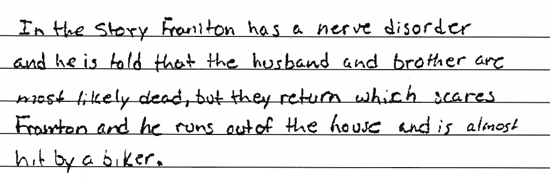 In the story Framton has a nerve disorder
and he is told that the husband and brother are
most likely dead, but they return which scares
Framton and he runs out of the house and is almost
hit by a biker.